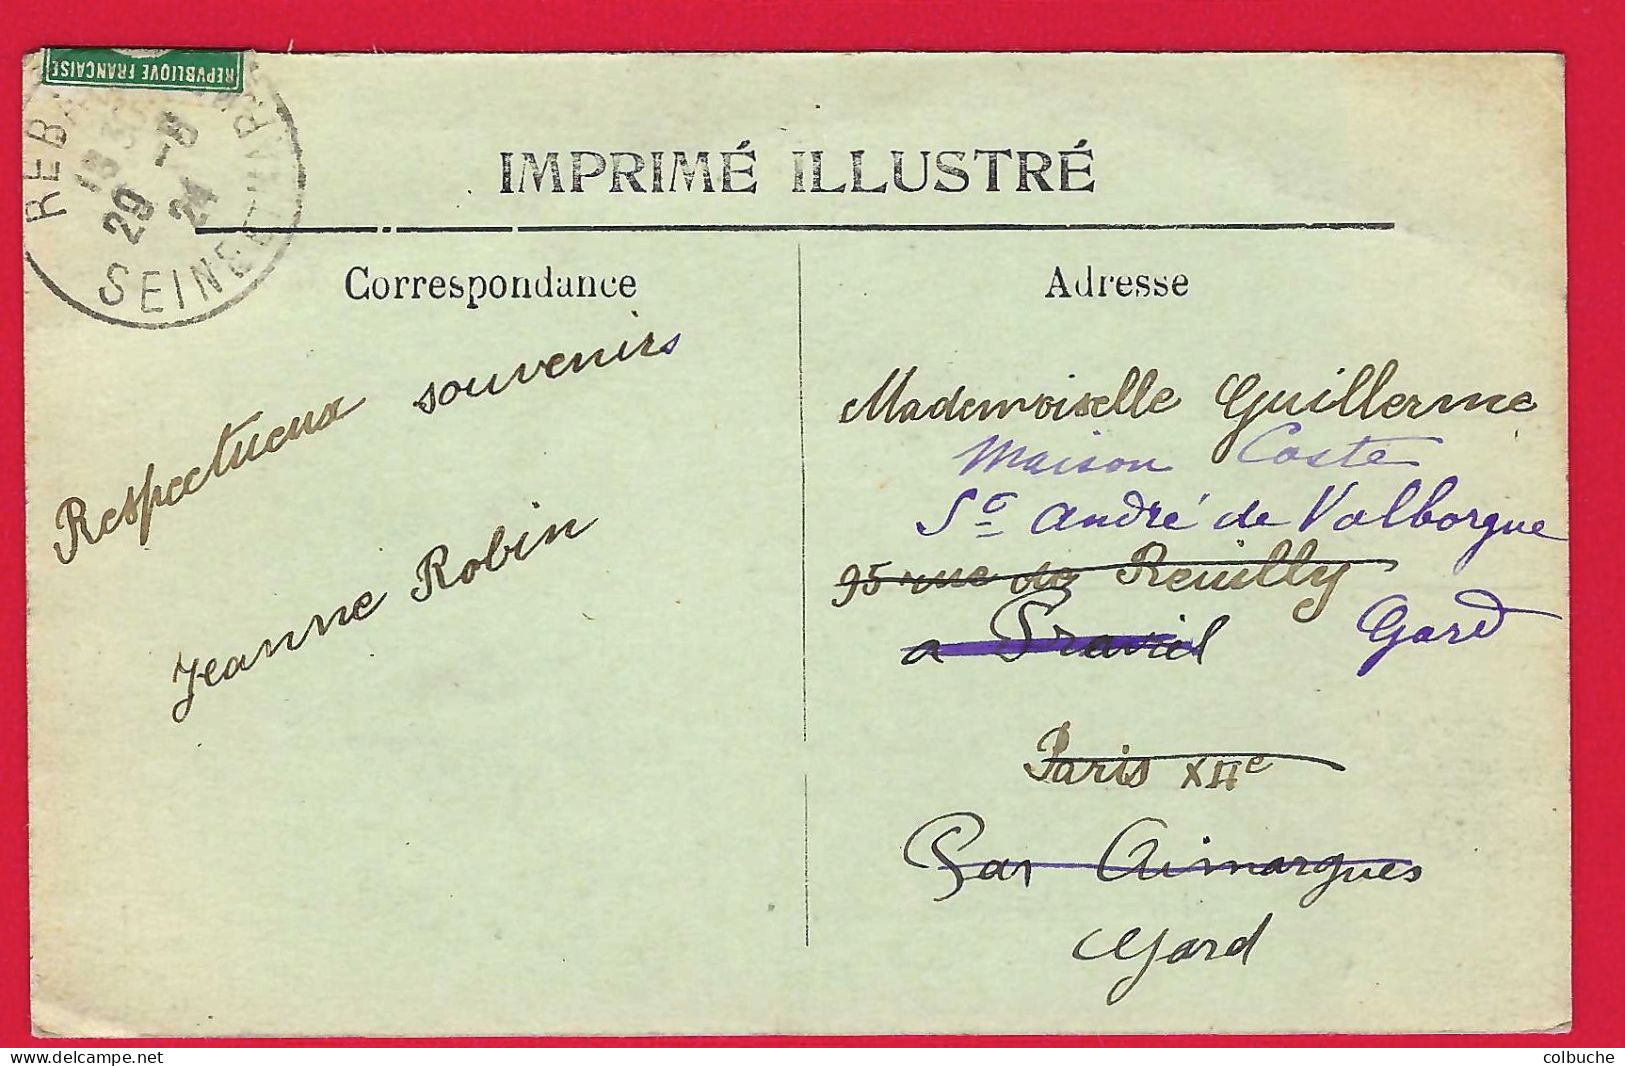 REPVBLIQVE FRANÇAISE
REB
18 30
29 -5
24
SEINE ET MARNE
IMPRIMÉ ILLUSTRÉ
Correspondance
Respectueux souvenirs
Jeanne Robin
Adresse
Mademoiselle Guillerme
Maison Coste
St André de Valborgue
95 rue de Reuilly
Gard
a
Paris XIIe
Par Aimargues
Gard
www.delcampe.net
colbuche